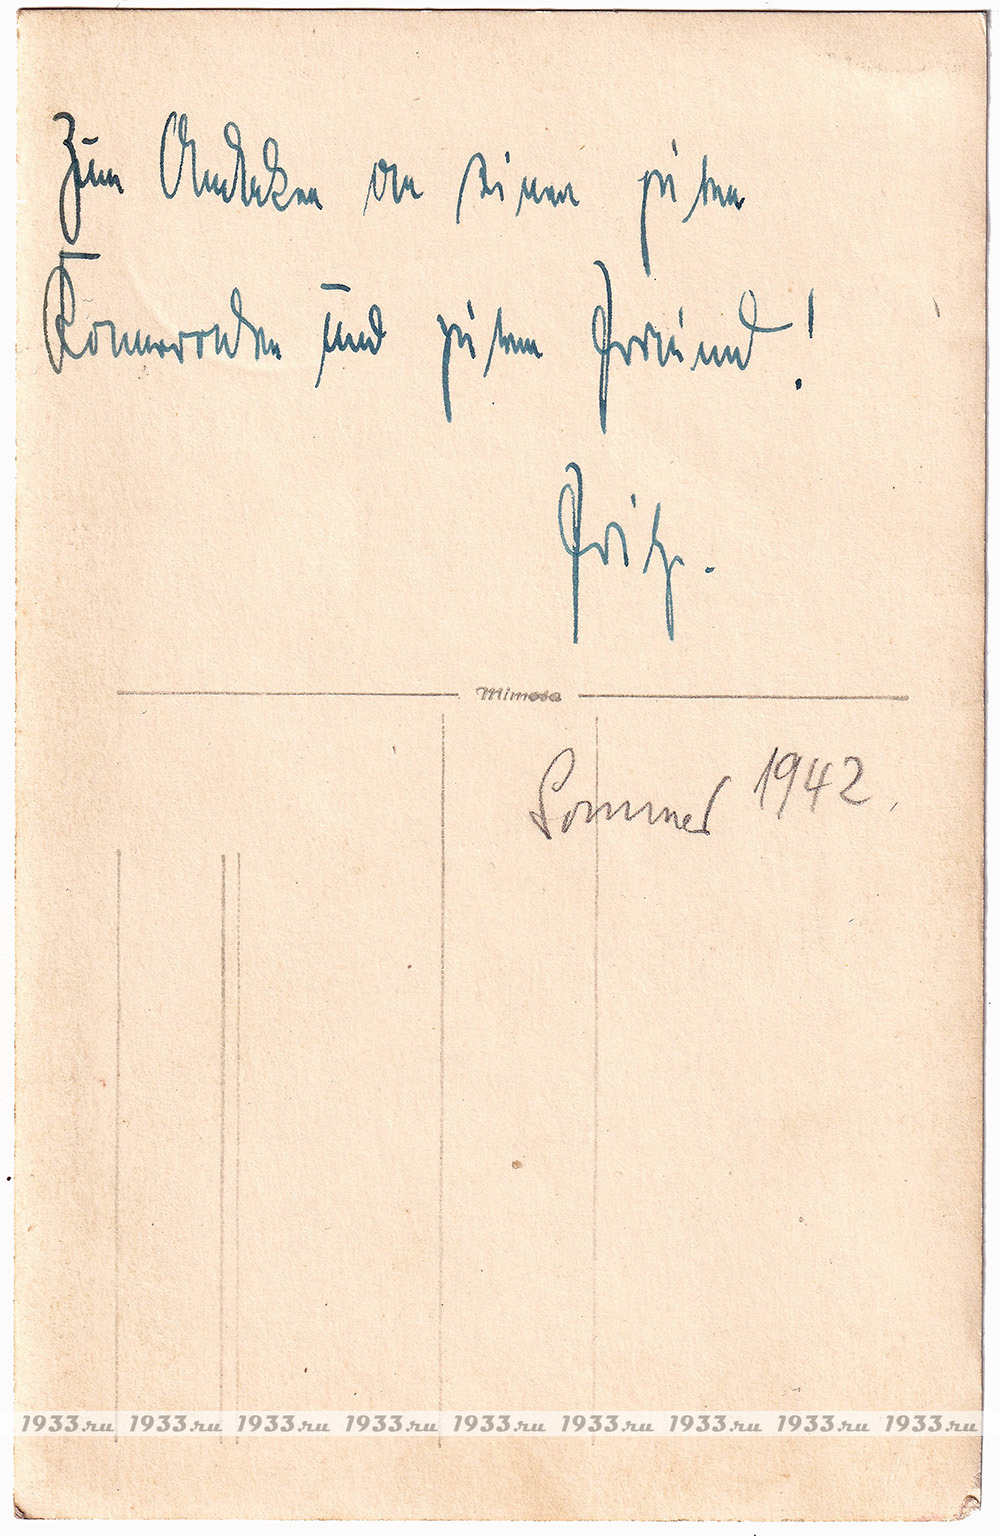 Zum Andenken an einen guten
Kameraden und guten Freund!
Fritz.
Mimosa
Sommer 1942.
1933.ru 1933.ru 1933.ru 1933.ru 1933.ru 1933.ru 1933.ru 1933.ru 1933.ru